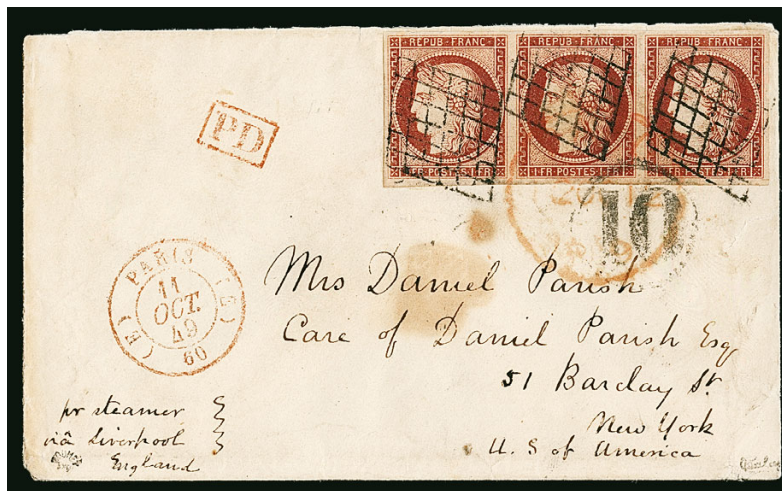 REPUB·FRANC
REPUB·FRANC
REPUB·FRANC
1·FR·POSTES·1·FR
1·FR·POSTES·1·FR
1·FR·POSTES·1·FR
PD
10
(E) PARIS (E)
11
OCT.
49
60
Mrs Daniel Parish
Care of Daniel Parish Esq
51 Barclay St
New York
U. S of America
pr steamer
viâ Liverpool
England